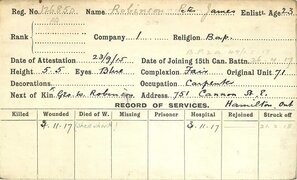 Reg. No. Name Robinson Peter James Enlistt. Age 23
Rank Company 1 Religion Bap.
Date of Attestation 23/9/15 Date of Joining 15th Can. Battn.
Height 5.5 Eyes Blue Complexion Fair Original Unit 71
Decorations Occupation Carpenter
Next of Kin Geo. W. Robinson Address 751 Cannon St. E.
RECORD OF SERVICES. Hamilton Ont
Killed Wounded Died of W. Missing Prisoner Hospital Rejoined Struck off
11-17 11-17